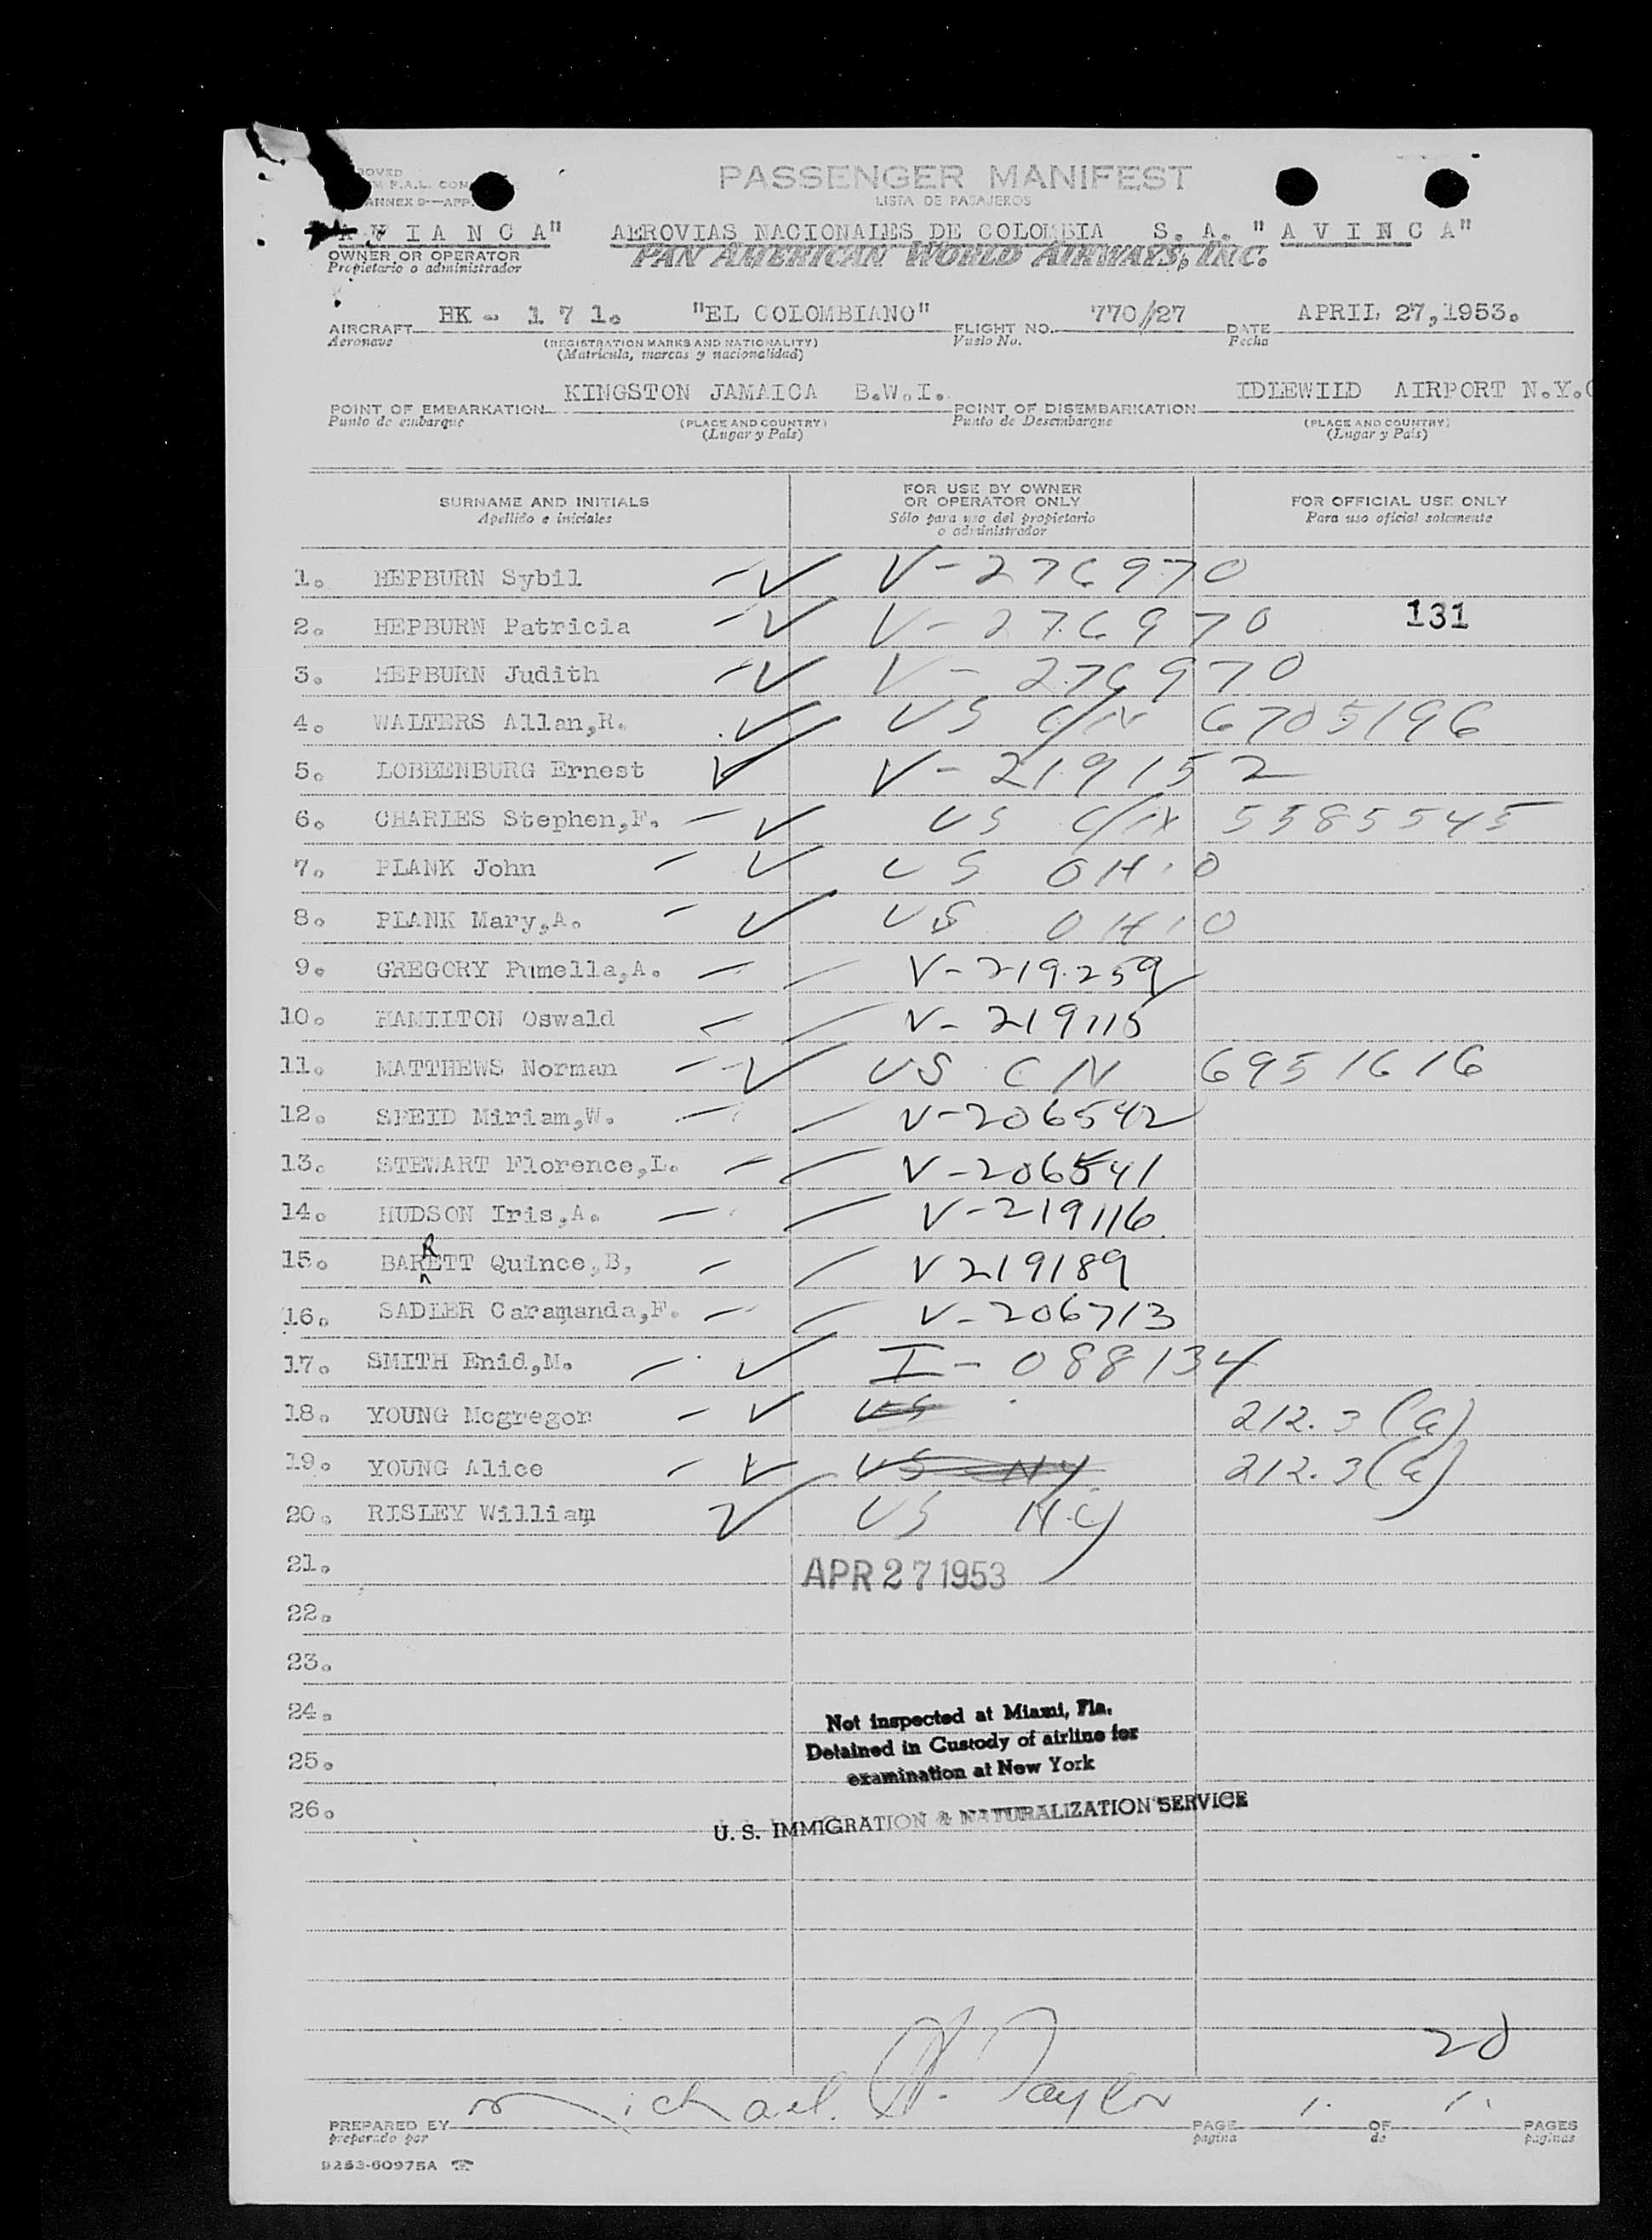 PASSENGER MANIFEST
LISTA DE PASAJEROS
ANNEX 9—APP.
A V I A N C A" AEROVIAS NACIONALES DE COLOMBIA S. A. " A V I N C A"
OWNER OR OPERATOR PAN AMERICAN WORLD AIRWAYS, INC.
Propietario o administrador
AIRCRAFT HK - 1 7 1. "EL COLOMBIANO" FLIGHT NO. 770//27 DATE APRIL 27,1953.
Aeronave (REGISTRATION MARKS AND NATIONALITY) Vuelo No. Fecha
(Matrícula, marcas y nacionalidad)
POINT OF EMBARKATION KINGSTON JAMAICA B.W.I. POINT OF DISEMBARKATION IDLEWILD AIRPORT N.Y.C
Punto de embarque (PLACE AND COUNTRY) Punto de Desembarque (PLACE AND COUNTRY)
(Lugar y País) (Lugar y País)
SURNAME AND INITIALS FOR USE BY OWNER OR OPERATOR ONLY FOR OFFICIAL USE ONLY
Apellido e iniciales Sólo para uso del propietario o administrador Para uso oficial solamente
1. HEPBURN Sybil V-276970
2. HEPBURN Patricia V-276970 131
3. HEPBURN Judith V-276970
4. WALTERS Allan,R. US C/N 6705196
5. LOBBENBURG Ernest V-219152
6. CHARLES Stephen,F. US C/N 5585545
7. PLANK John US OHIO
8. PLANK Mary,A. US OHIO
9. GREGORY Pumella,A. V-219259
10. HAMILTON Oswald V-219115
11. MATTHEWS Norman US C N 6951616
12. SPEID Miriam,W. V-206542
13. STEWART Florence,L. V-206541
14. HUDSON Iris,A. V-219116
15. BARRETT Quince,B, V219189
16. SADLER Caramanda,F. V-206713
17. SMITH Enid,M. I-088134
18. YOUNG Mcgregor US 212.3(a)
19. YOUNG Alice US NY 212.3(a)
20. RISLEY William US
21. APR 27 1953
22.
23.
24.
Not inspected at Miami, Fla.
25. Detained in Custody of airline for
examination at New York
26.
U. S. IMMIGRATION & NATURALIZATION SERVICE
20
PREPARED BY Michael A. Taylor PAGE 1. OF 1. PAGES
preparado por pagina de paginas
9253-60975A